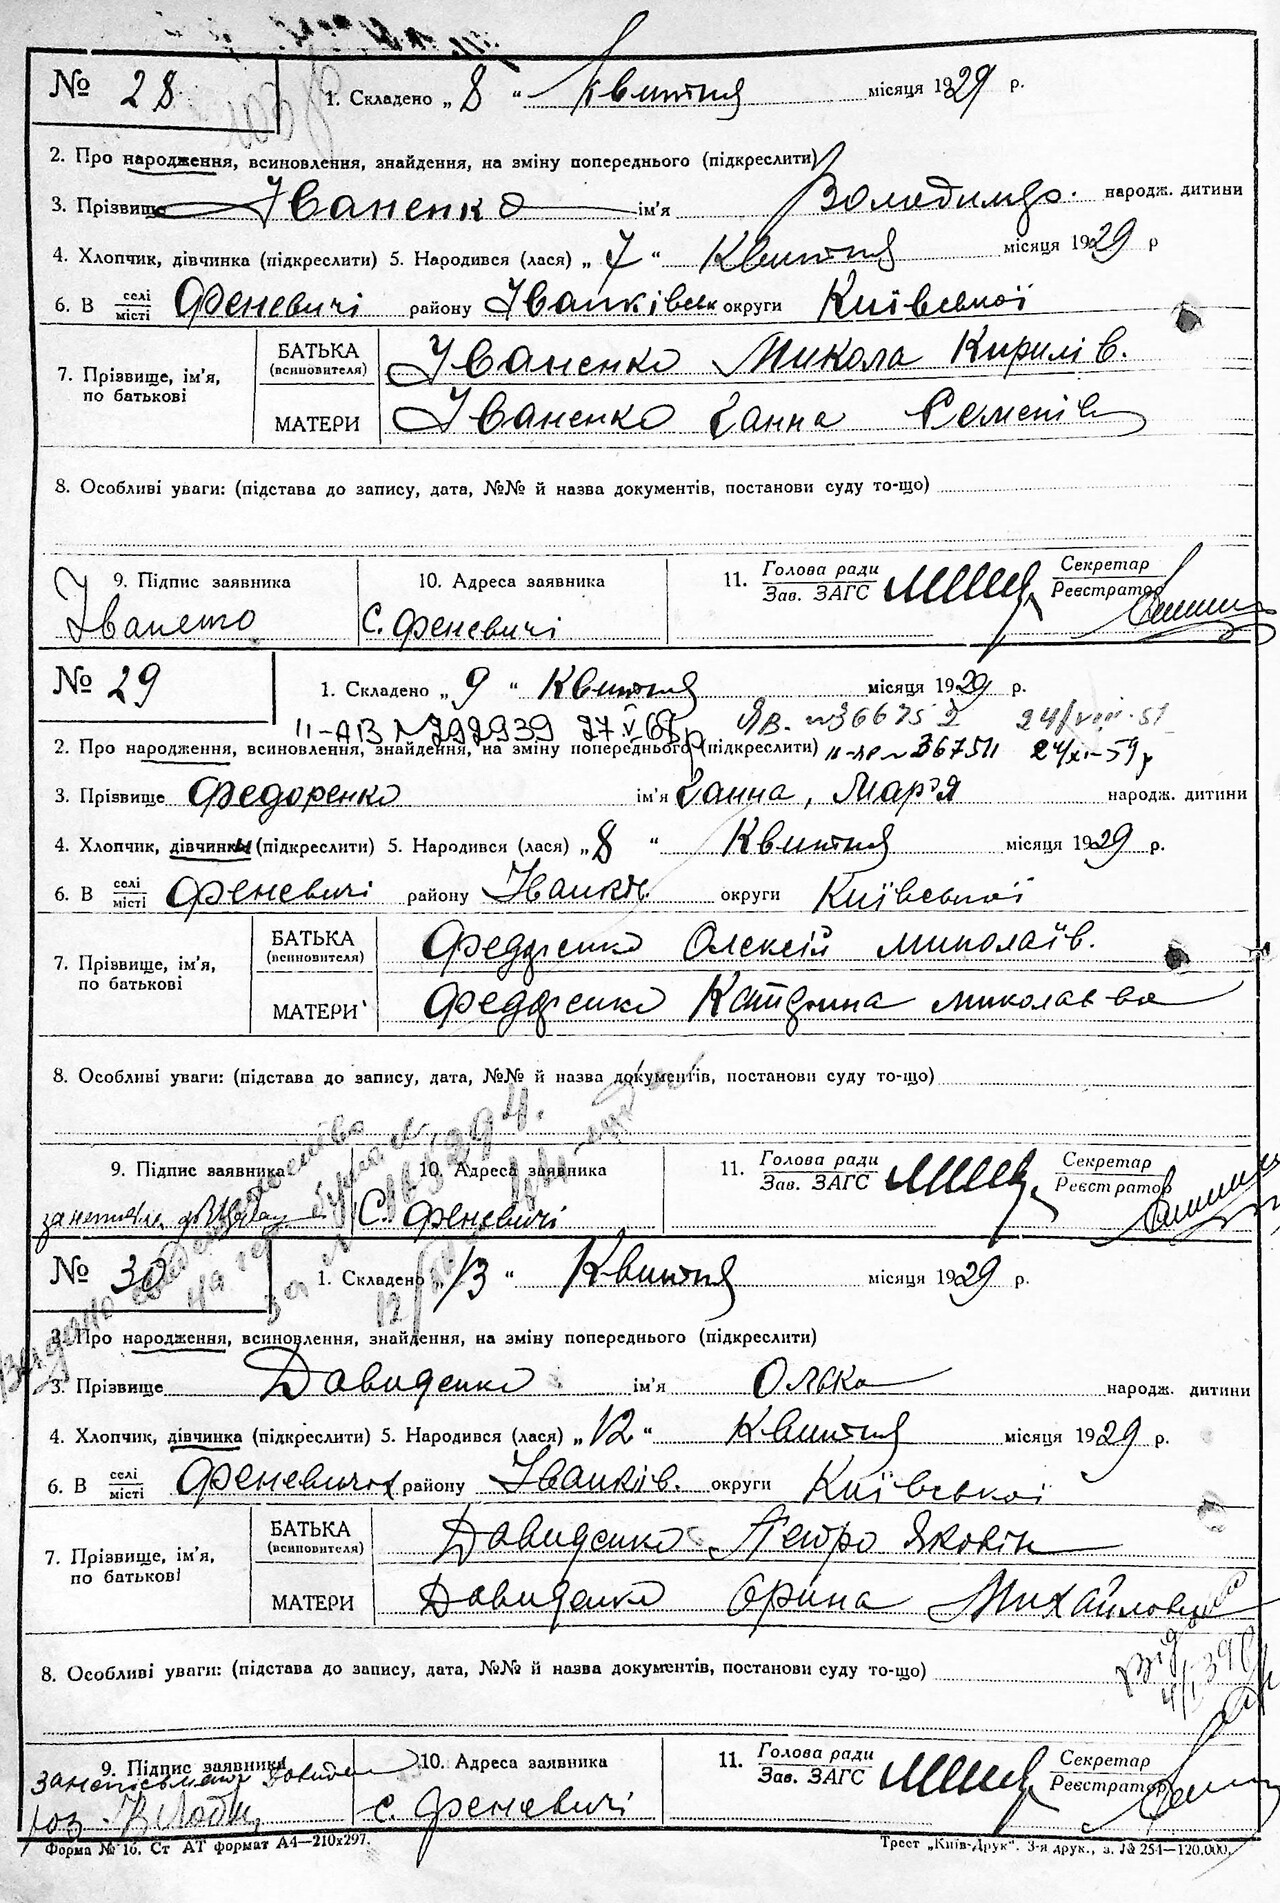 № 28
1. Складено „ 8 " Квитня місяця 1929 р.
2. Про народження, всиновлення, знайдення, на зміну попереднього (підкреслити)
3. Прізвище Іваненко ім'я Володимир. народж. дитини
4. Хлопчик, дівчинка (підкреслити) 5. Народився (лася) „ 7 " Квитня місяця 1929 р
6. В селі/місті Феневичі району Іванківськ округи Київської
7. Прізвище, ім'я, по батькові
БАТЬКА (всиновителя) Іваненко Микола Кирилів.
МАТЕРИ Іваненко Ганна Семенів
8. Особливі уваги: (підстава до запису, дата, №№ й назва документів, постанови суду то-що)
9. Підпис заявника 10. Адреса заявника 11. Голова ради/Зав. ЗАГС Секретар/Реєстратор
Іваненко с. Феневичі
№ 29
1. Складено „ 9 " Квитня місяця 1929 р.
II-АВ № 792939 27 V 69р ЯВ. №366752 24/VIII-51
2. Про народження, всиновлення, знайдення, на зміну попереднього (підкреслити) №367511 24/XI-59р
3. Прізвище Федоренко ім'я Ганна, Мар'я народж. дитини
4. Хлопчик, дівчинки (підкреслити) 5. Народився (лася) „ 8 " Квитня місяця 1929 р.
6. В селі/місті Феневичі району Іванків. округи Київської
7. Прізвище, ім'я, по батькові
БАТЬКА (всиновителя) Федоренко Олексій Миколаїв.
МАТЕРИ Федоренко Катерина Миколаєвна
8. Особливі уваги: (підстава до запису, дата, №№ й назва документів, постанови суду то-що)
9. Підпис заявника 10. Адреса заявника 11. Голова ради/Зав. ЗАГС Секретар/Реєстратор
с. Феневичі
№ 30
1. Складено „ 13 " Квитня місяця 1929 р.
2. Про народження, всиновлення, знайдення, на зміну попереднього (підкреслити)
3. Прізвище Давиденко ім'я Олька народж. дитини
4. Хлопчик, дівчинка (підкреслити) 5. Народився (лася) „ 12 " Квитня місяця 1929 р.
6. В селі/місті Феневичах району Іванків. округи Київської
7. Прізвище, ім'я, по батькові
БАТЬКА (всиновителя) Давиденко Петро Яковів
МАТЕРИ Давиденко Орина Михайловна
8. Особливі уваги: (підстава до запису, дата, №№ й назва документів, постанови суду то-що)
9. Підпис заявника 10. Адреса заявника 11. Голова ради/Зав. ЗАГС Секретар/Реєстратор
с. Феневичі
Форма № 16. Ст АТ формат А4—210х297.
Трест „Київ-Друк". 3-я друк., з. № 254—120.000.